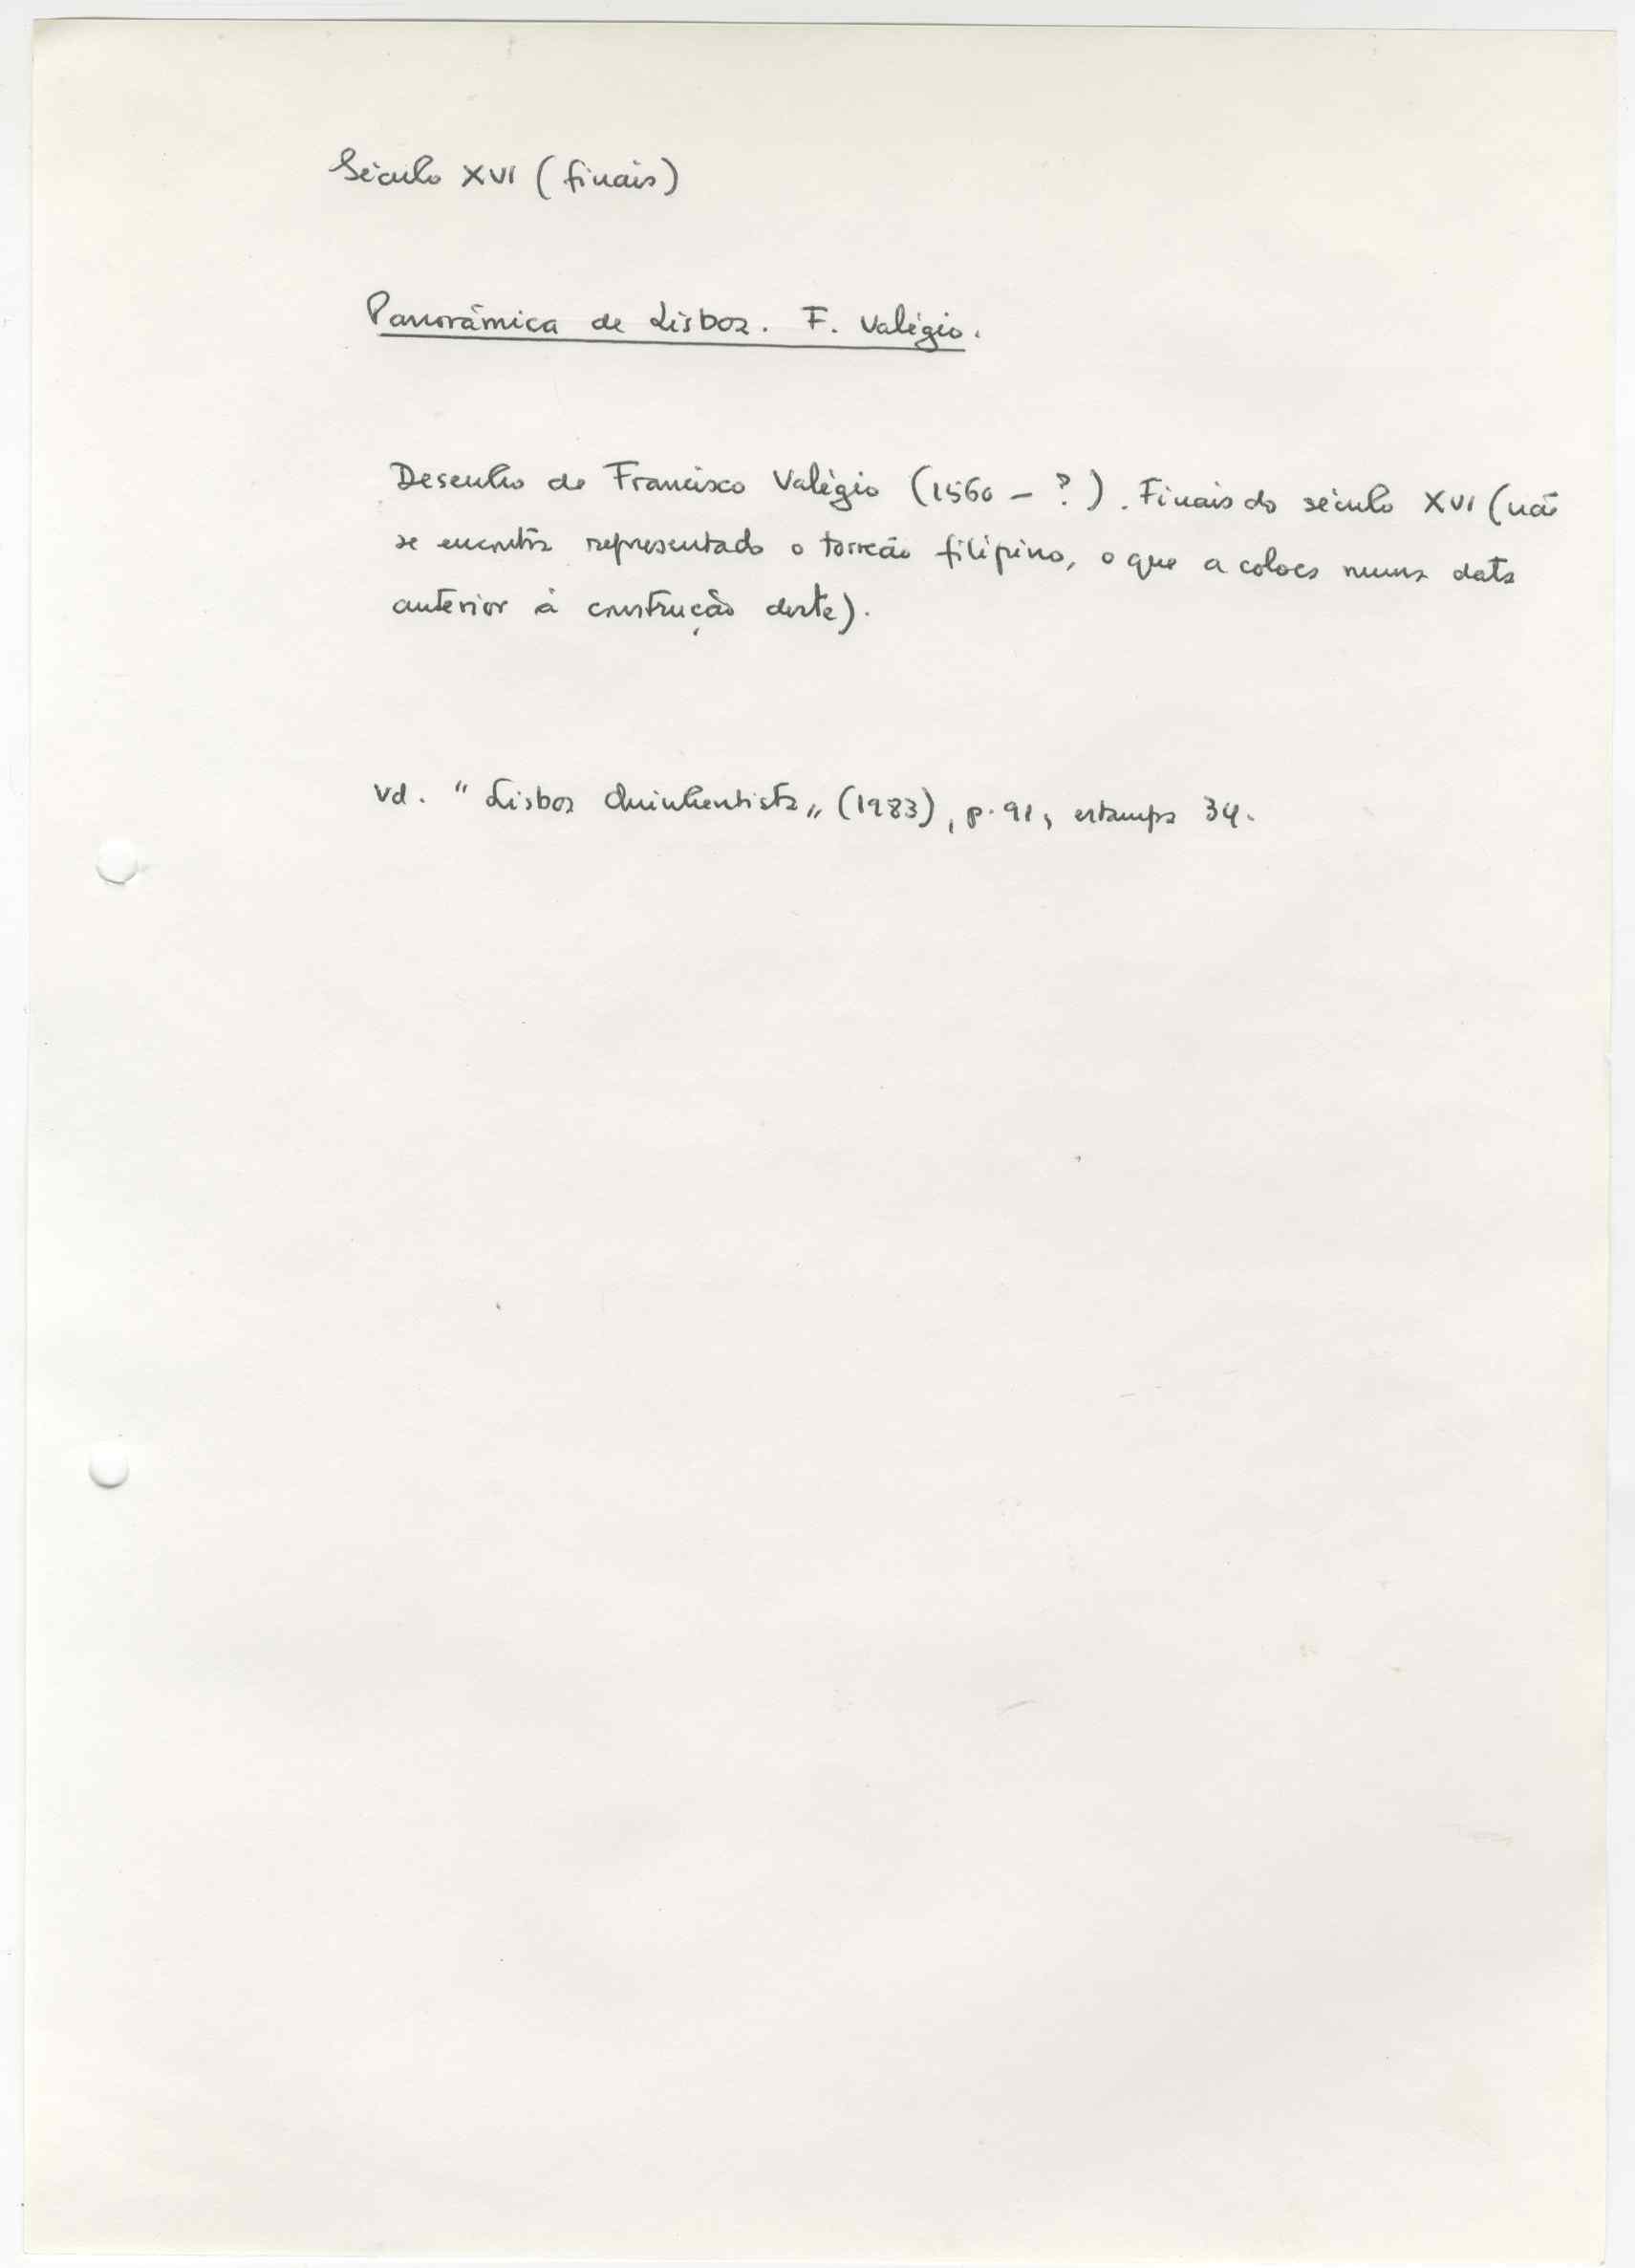 Século XVI (finais)
Panorâmica de Lisboa. F. Valégio.
Desenho de Francisco Valégio (1560 - ?). Finais do século XVI (não
se encontra representado o torreão filipino, o que a coloca numa data
anterior à construção deste).
Vd. "Lisboa Quinhentista" (1983), p. 91, estampa 34.